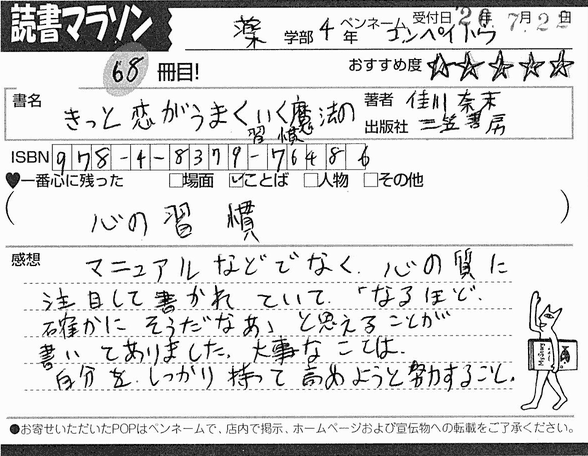 読書マラソン
薬 学部 4年 ペンネーム コンペイトウ 受付日 '2 年 7月22日
68 冊目!
おすすめ度 ☆☆☆☆☆
書名 きっと恋がうまくいく魔法の習慣
著者 佳川奈未
出版社 三笠書房
ISBN 978-4-8379-7648 6
♥一番心に残った □場面 ☑ことば □人物 □その他
(心の習慣)
感想 マニュアルなどでなく、心の質に
注目して書かれていて、「なるほど、
確かにそうだなあ」と思えることが
書いてありました。大事なことは、
自分をしっかり持って高めようと努力すること。
●お寄せいただいたPOPはペンネームで、店内で掲示、ホームページおよび宣伝物への転載をご了承ください。